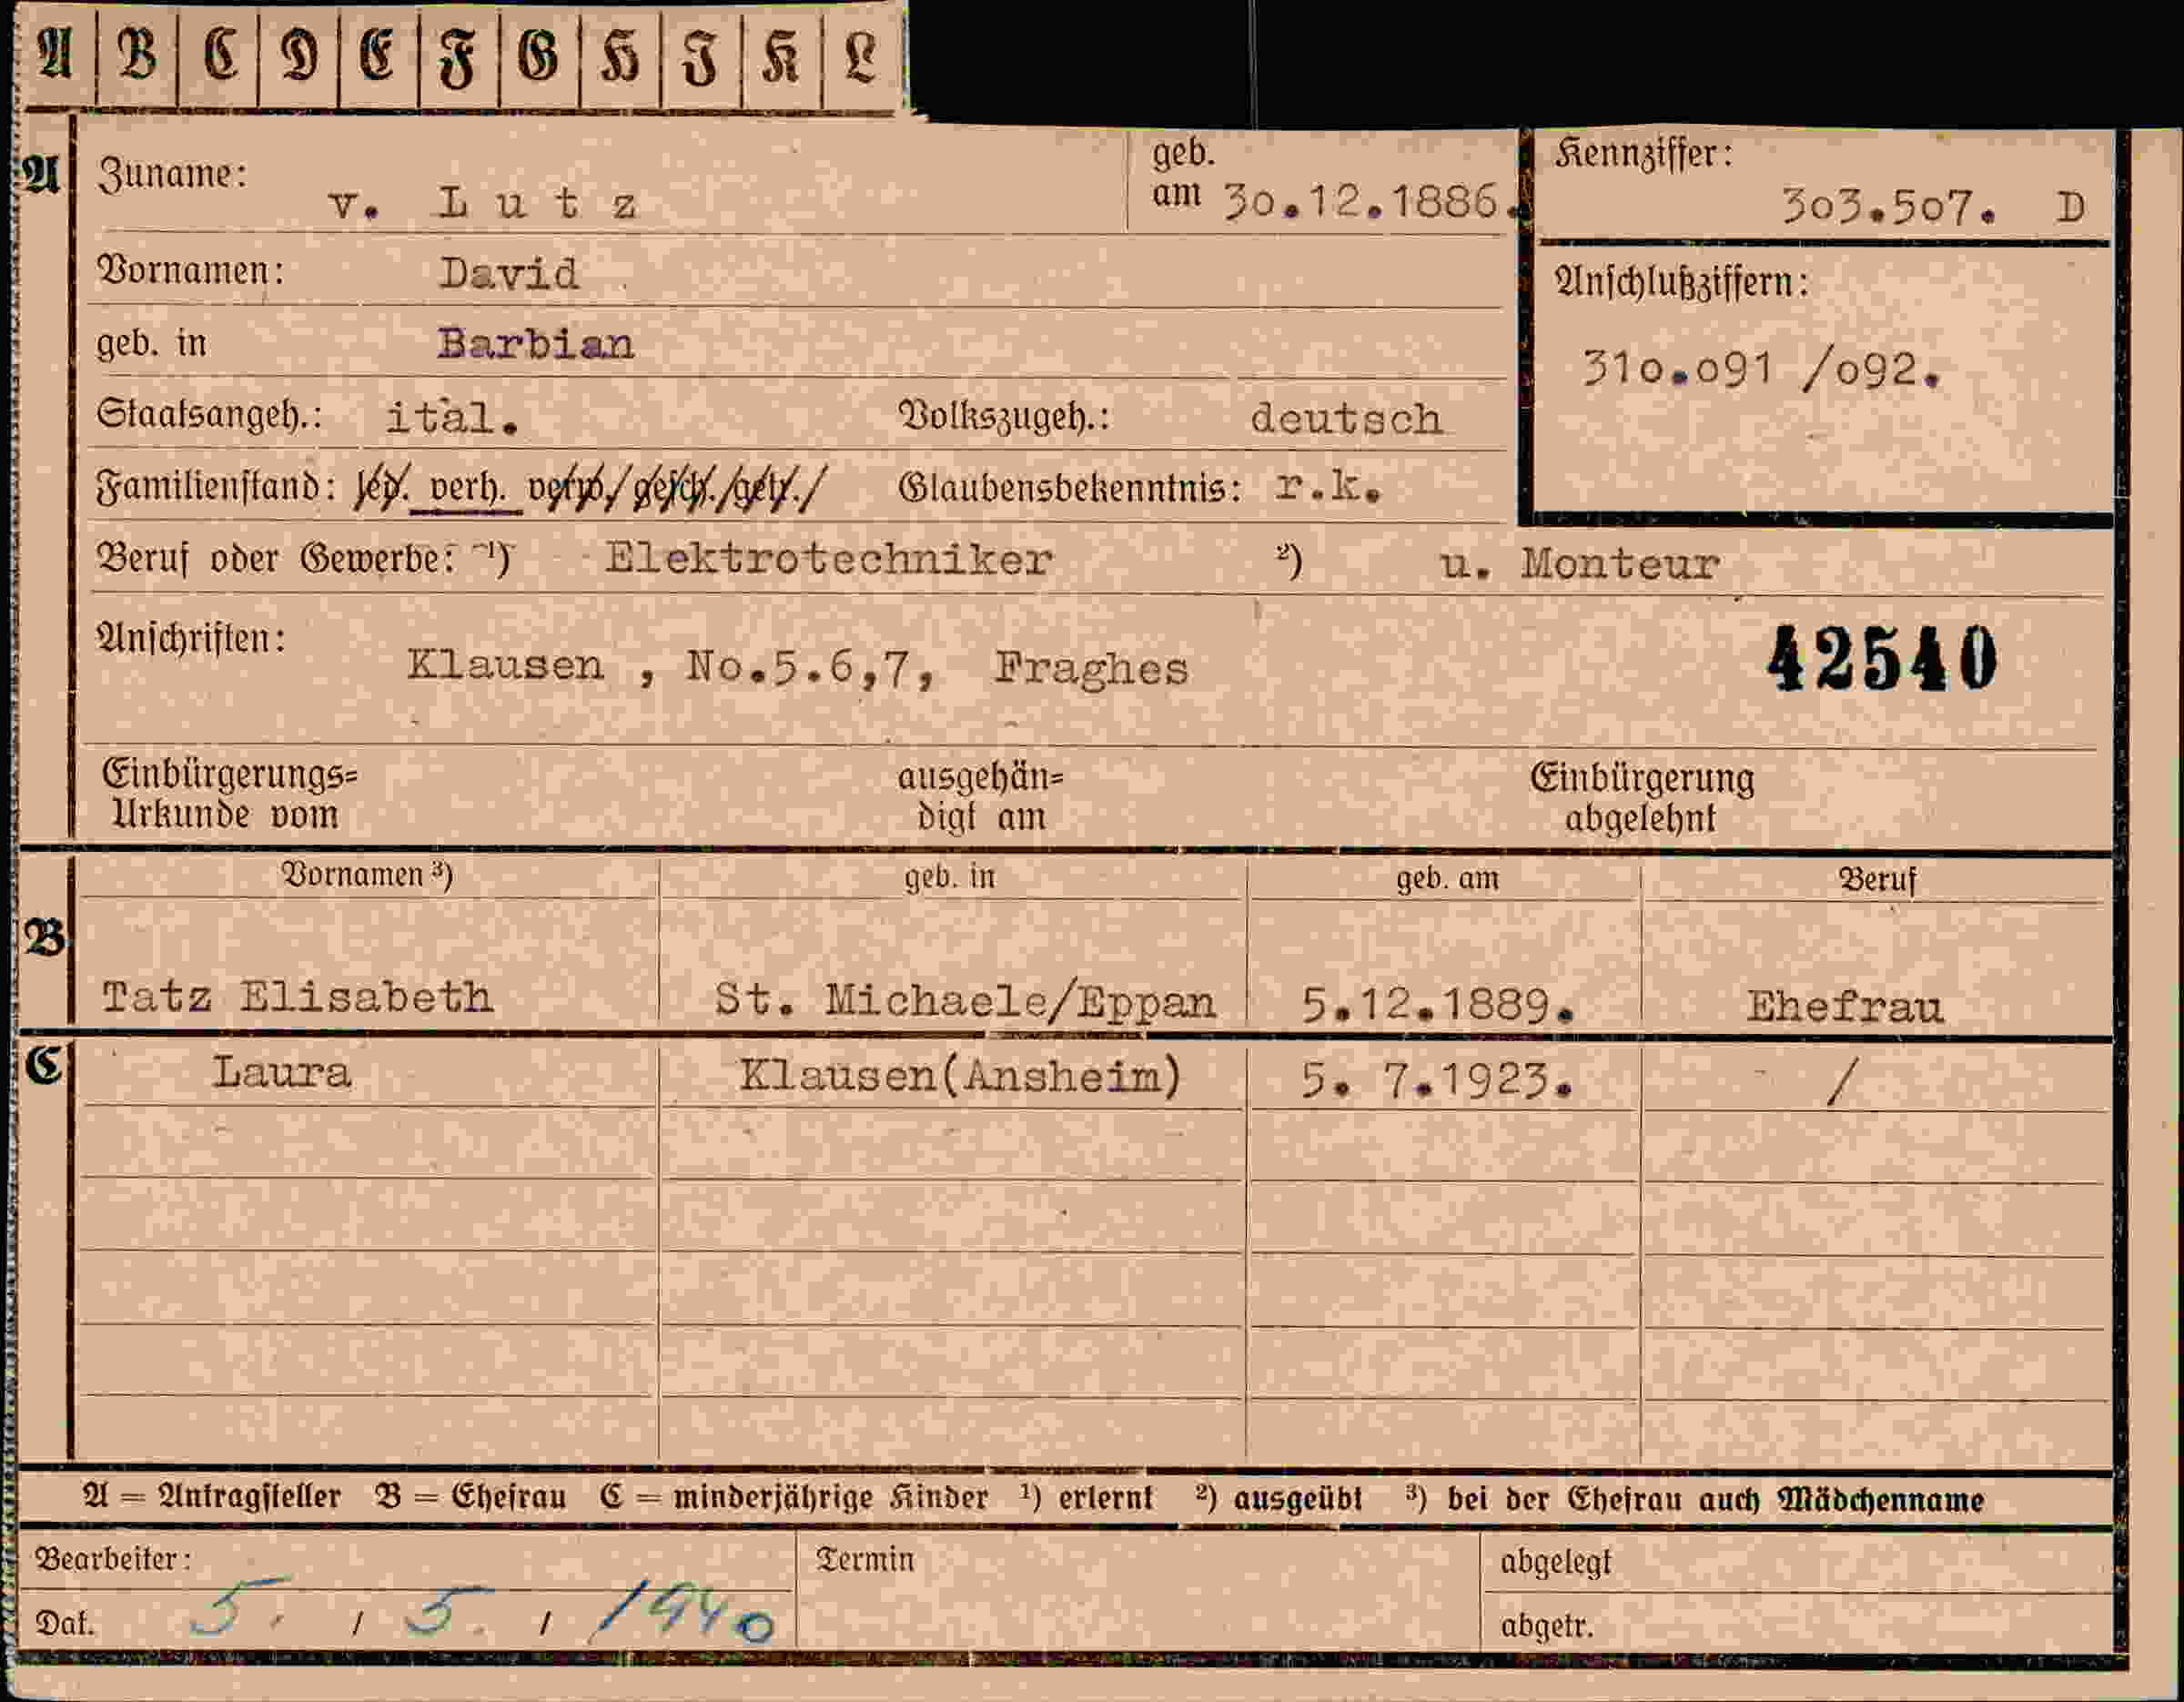 A B C D E F G H I K L
A Zuname: v. Lutz geb. am 30.12.1886. Kennziffer: 303.507. D
Vornamen: David
Anschlußziffern:
geb. in Barbian
310.091 /092.
Staatsangeh.: ital. Volkszugeh.: deutsch
Familienstand: led. verh. verw./gesch./getr./ Glaubensbekenntnis: r.k.
Beruf oder Gewerbe: ¹) Elektrotechniker ²) u. Monteur
Anschriften: Klausen , No.5.6,7, Fraghes 42540
Einbürgerungs= ausgehän= Einbürgerung
Urkunde vom digt am abgelehnt
Vornamen ³) geb. in geb. am Beruf
B
Tatz Elisabeth St. Michaele/Eppan 5.12.1889. Ehefrau
C Laura Klausen(Ansheim) 5. 7.1923. /
A = Antragsteller B = Ehefrau C = minderjährige Kinder ¹) erlernt ²) ausgeübt ³) bei der Ehefrau auch Mädchenname
Bearbeiter: Termin abgelegt
Dat. 5. / 5. / 1940 abgetr.